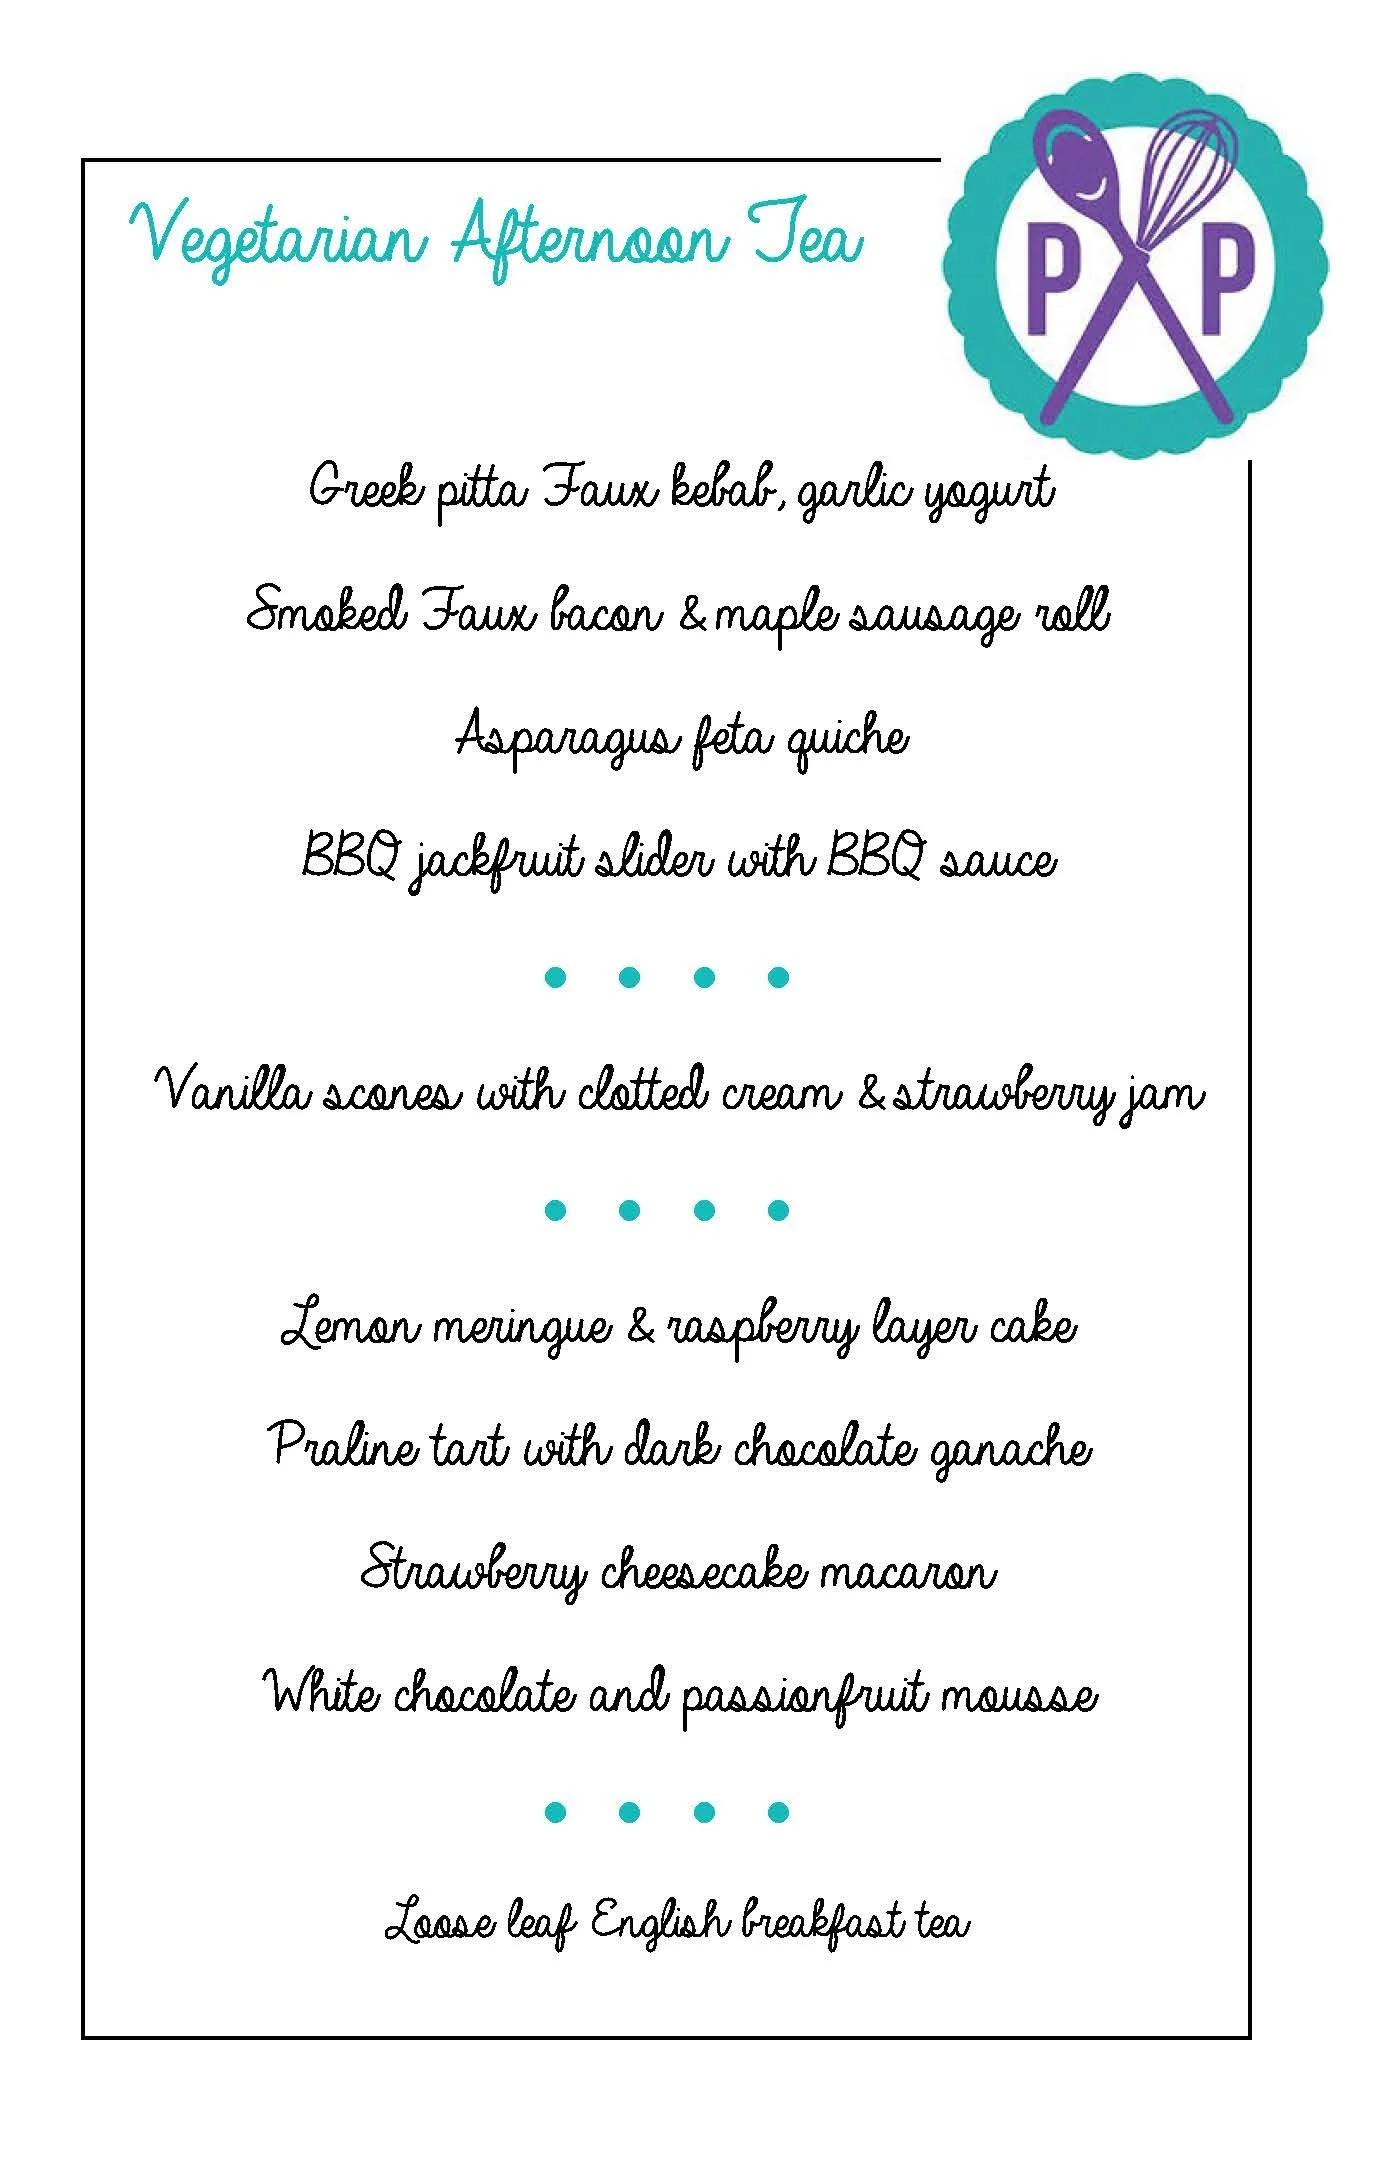 Vegetarian Afternoon Tea
P P
Greek pitta Faux kebab, garlic yogurt
Smoked Faux bacon & maple sausage roll
Asparagus feta quiche
BBQ jackfruit slider with BBQ sauce
Vanilla scones with clotted cream & strawberry jam
Lemon meringue & raspberry layer cake
Praline tart with dark chocolate ganache
Strawberry cheesecake macaron
White chocolate and passionfruit mousse
Loose leaf English breakfast tea